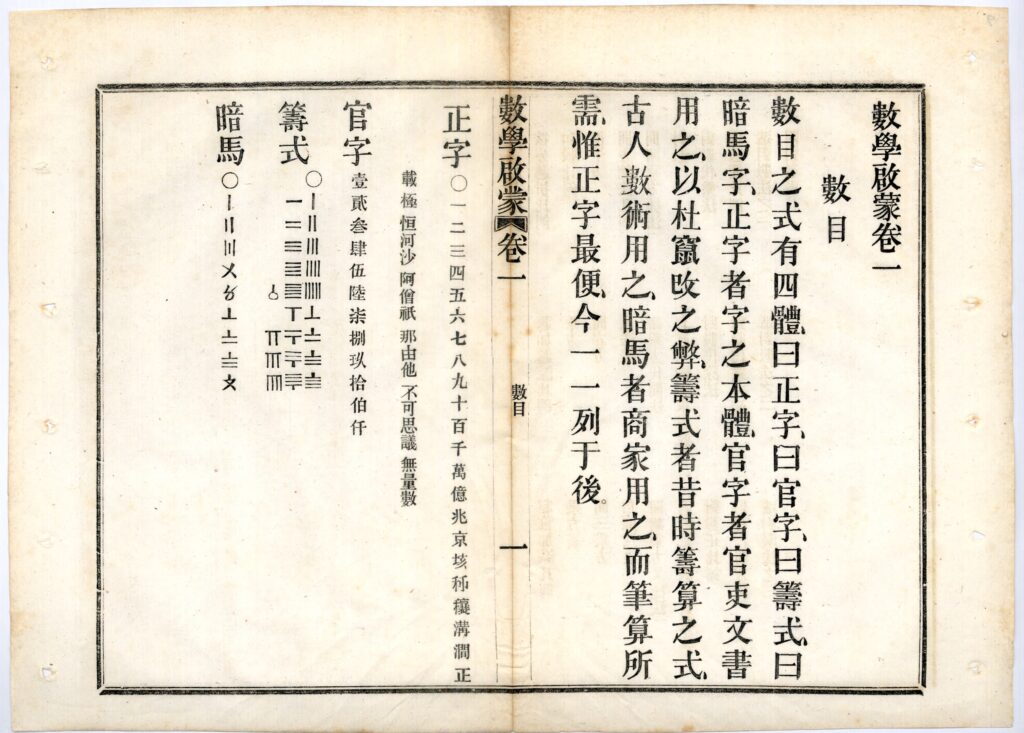 數學啟蒙卷一
數目
數目之式有四體、曰正字、曰官字、曰籌式、曰
暗馬字、正字者字之本體、官字者官吏文書
用之、以杜竄改之弊、籌式者昔時籌算之式、
古人數術用之、暗馬者商家用之、而筆算所
需、惟正字最便、今一一列于後。
數學啟蒙 卷一 數目 一
正字 〇一二三四五六七八九十百千萬億兆京垓秭穰溝澗正
載極 恒河沙 阿僧祇 那由他 不可思議 無量數
官字 壹貳叁肆伍陸柒捌玖拾伯仟
籌式 〇
暗馬 〇〡〢〣〤〥〦〧〨〩